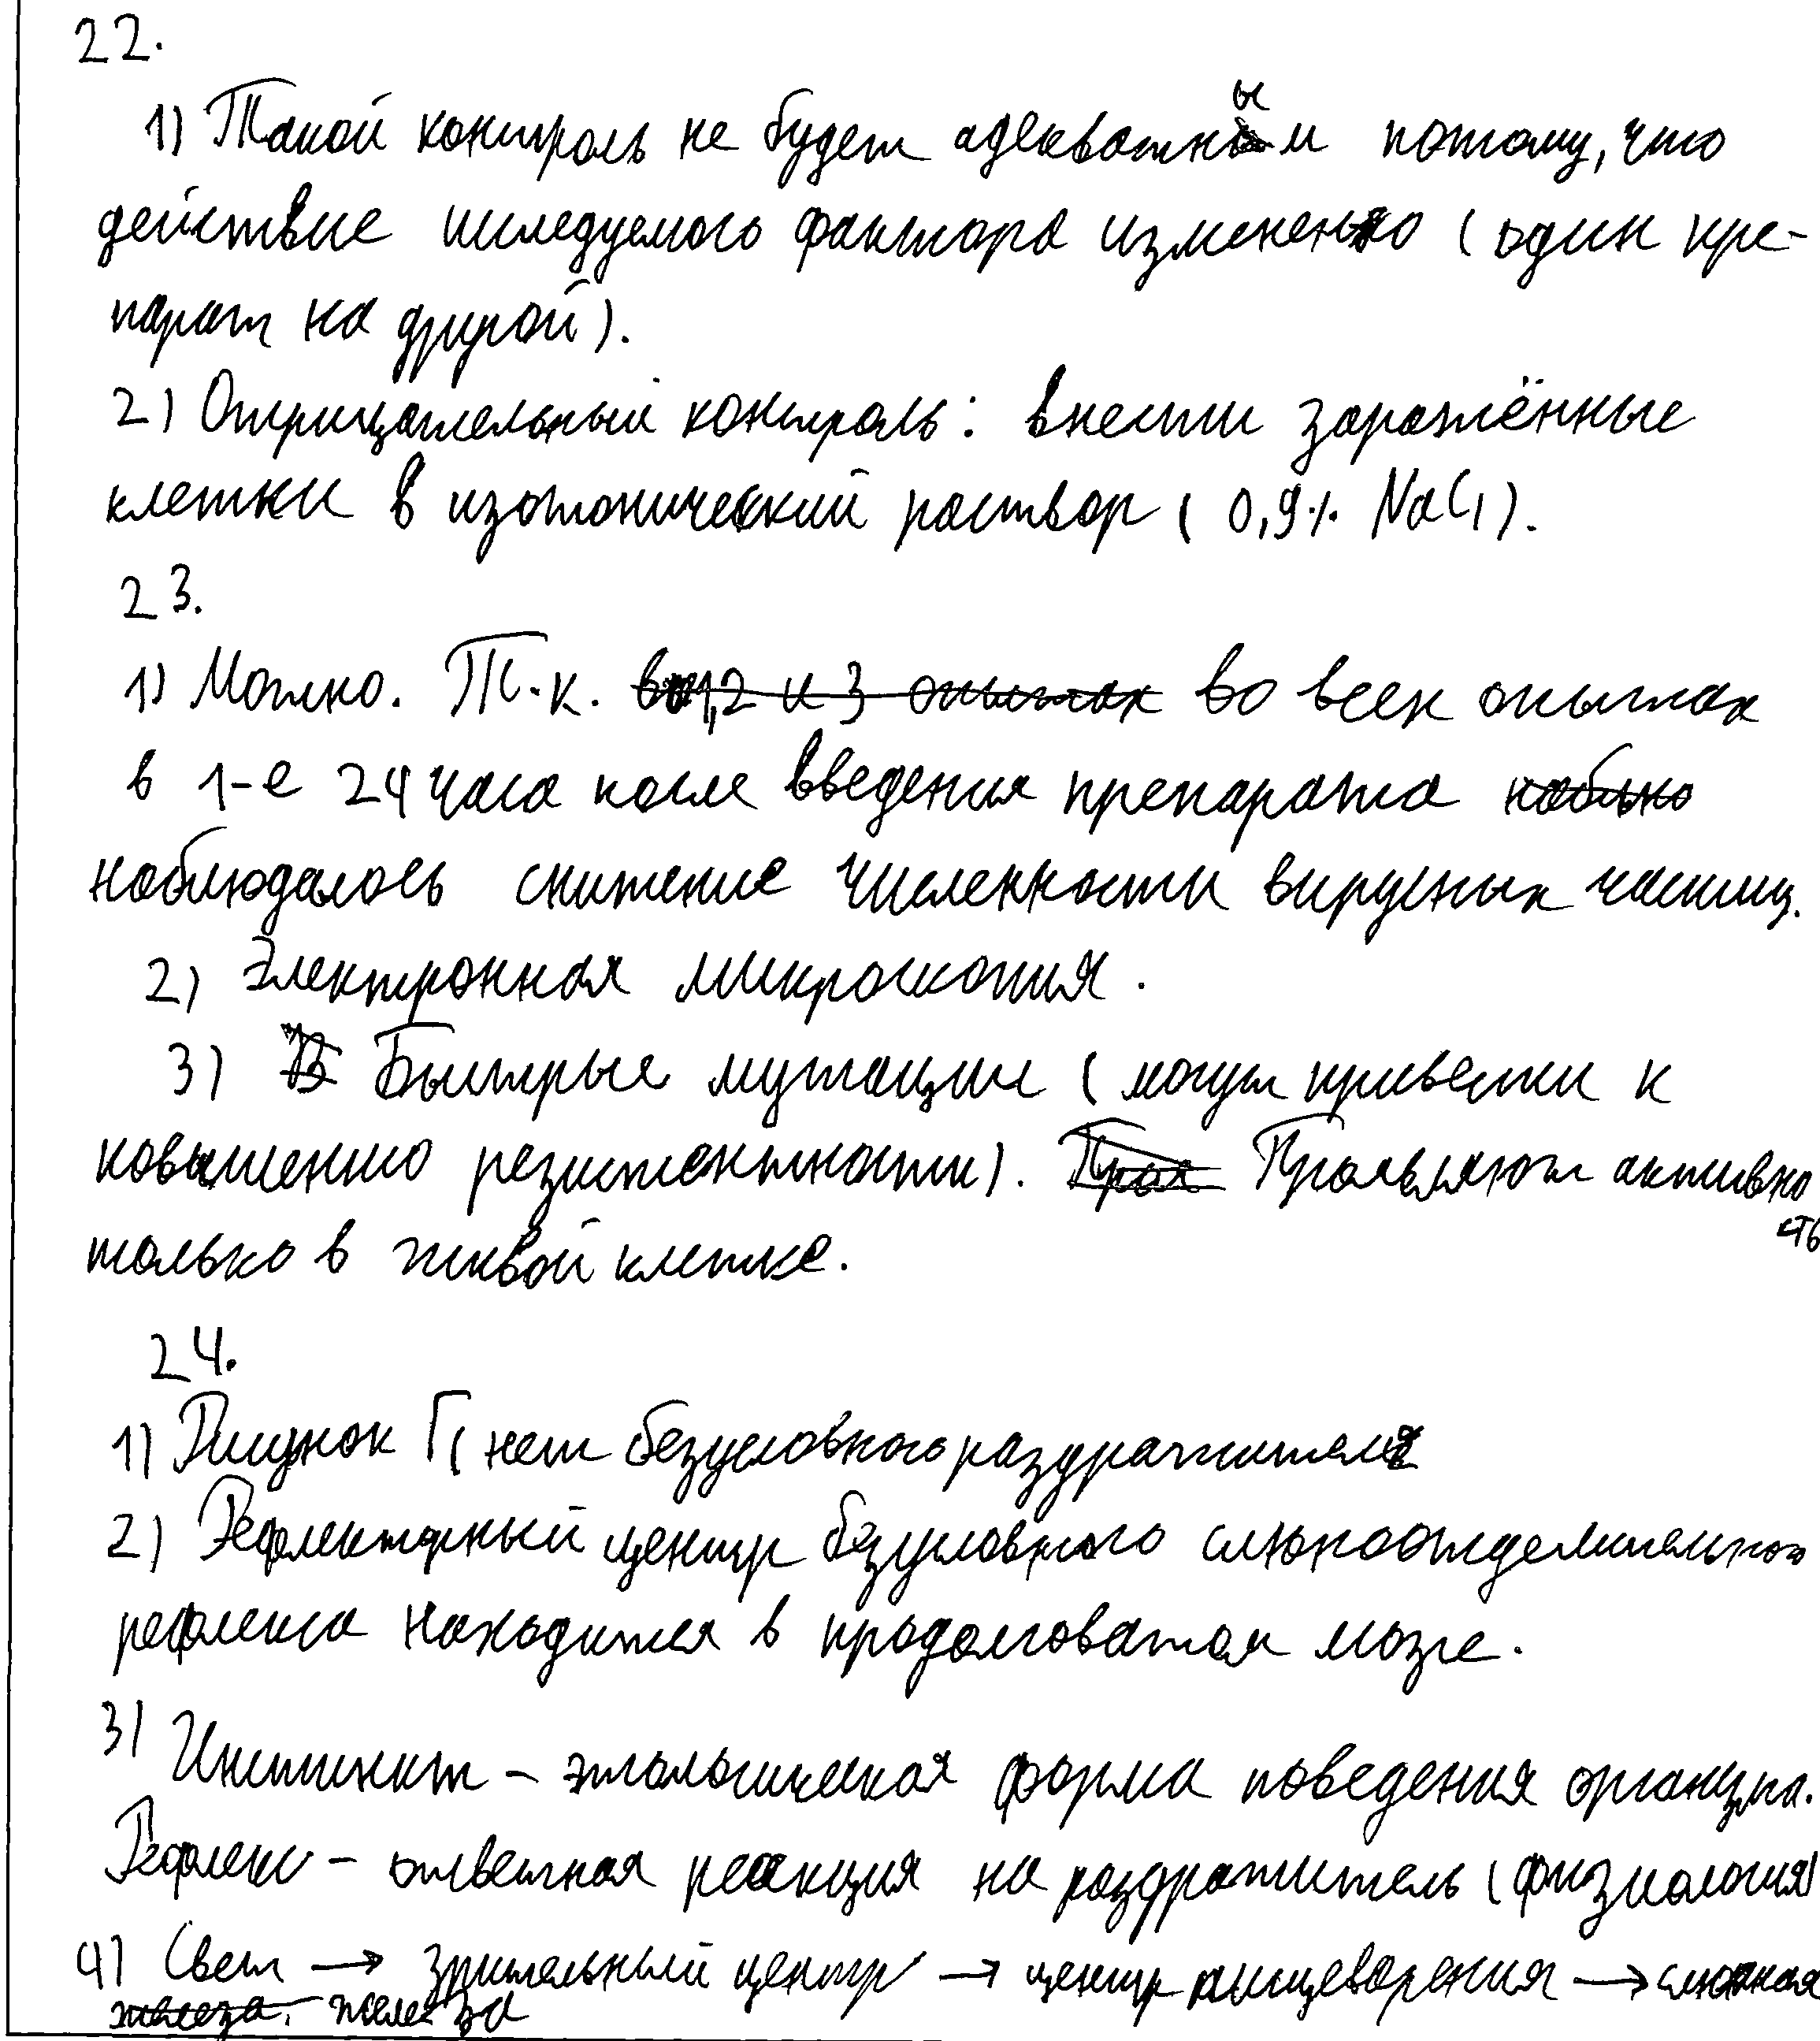 22.
1) Такой контроль не будет адекватным потому, что
действие исследуемого фактора изменено (один пре-
парат на другой).
2) Отрицательный контроль: внести заражённые
клетки в изотонический раствор (0,9% NaCl).
23.
1) Можно. Т.к. во 1,2 и 3 опытах во всех опытах
в 1-е 24 часа после введения препарата
наблюдалось снижение численности вирусных частиц.
2) Электронная микроскопия.
3) В Быстрые мутации (могут привести к
повышению резистентности). Проя Проявляют активно
сть
только в живой клетке.
24.
1) Рисунок Г (нет безусловного раздражителя
2) Рефлекторный центр безусловного слюноотделительного
рефлекса находится в продолговатом мозге.
3) Инстинкт – этологическая форма поведения организма.
Рефлекс – ответная реакция на раздражитель (физиология)
4) Свет → зрительный центр → центр пищеварения → слюнная
железа. железа